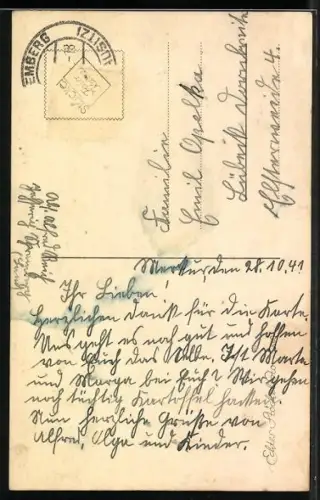 EMBERG
(LAUSITZ)
Familie
Emil Opelka
Lübeck
Elsterweide 4.
den 28.10.41
Ihr Lieben!
Herzlichen Dank für die Karte.
Uns geht es noch gut und hoffen
von Euch das Selbe. Ist Marta
und Marga bei Euch? Wir gehen
noch tüchtig Kartoffel hacken.
Nun herzliche Grüße von
Alfred, Olga und Kinder.